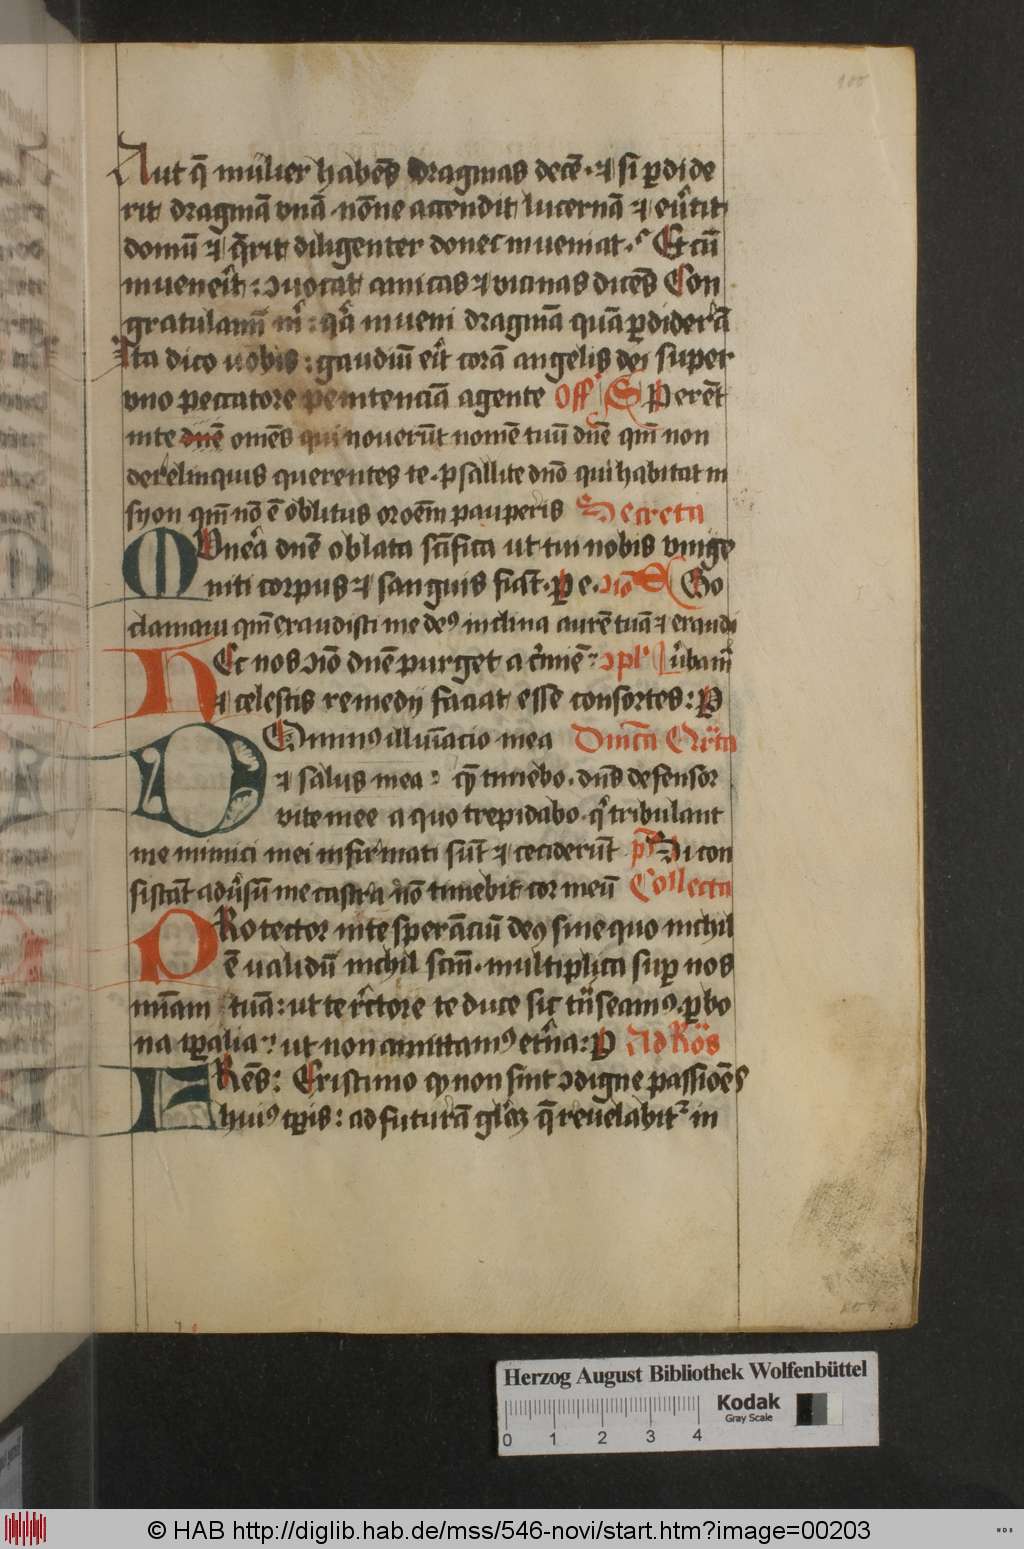 Aut q̄ mulier habēs dragmas decē · ⁊ si ꝑdide
rit dragmā vnā · nōne accendit lucernā ⁊ eu̾tit
domū ⁊ q̄rit diligenter donec inueniat · Et cū
inuenerit : ↄuocat amicas ⁊ vicinas dicēs Con
gratulamī m̄ : qa inueni dragmā quā ꝑdiderā
Ita dico uobis : gaudiū erit corā angelis dei super
vno peccatore penitenciā agente Off S Perēt
in te dn̄e omēs qui nouerūt nomē tuū dn̄e qm̄ non
derelinquis querentes te · psallite dn̄o qui habitat in
syon qm̄ nō ē oblitus oroēm pauperis Secreta
MVnera dn̄e oblata sc̄ifica ut tui nobis vnige
niti corpus ⁊ sanguis fiāt · Pe · ↄio S Ego
clamaui qm̄ exaudisti me deꝰ inclina aurē tuā ⁊ exaudi
HEc nos ↄio dn̄e purget a c̾mīe : ↄpl̾
⁊ celestis remedij faciat esse consortes : P
DOminꝰ illuīacio mea Dnīca Q̾rta
⁊ salus mea : q̄ timebo · dn̄s defensor
vite mee a quo trepidabo · q̾ tribulant
me inimici mei infirmati sūt ⁊ ceciderūt ps Si con
sistāt adu̾sū me castra nō timebit cor meū Collecta
PRotector in te sperāciū deꝰ sine quo nichil
ē ualidū nichil sc̄m · multiplica suꝑ nos
mīam tuā : ut te r̾ctore te duce sic t̾nseamꝰ · ꝑ bo
na tꝑalia : ut non amittamꝰ et̾na : P Ad Ros
FRēs : Existimo qꝫ non sint ↄdigne passiōes
huiꝰ tꝑis : ad futurā gl̾iā q̄ reuelabit̾ in
Herzog August Bibliothek Wolfenbüttel
0 1 2 3 4
Kodak
Gray Scale
© HAB http://diglib.hab.de/mss/546-novi/start.htm?image=00203